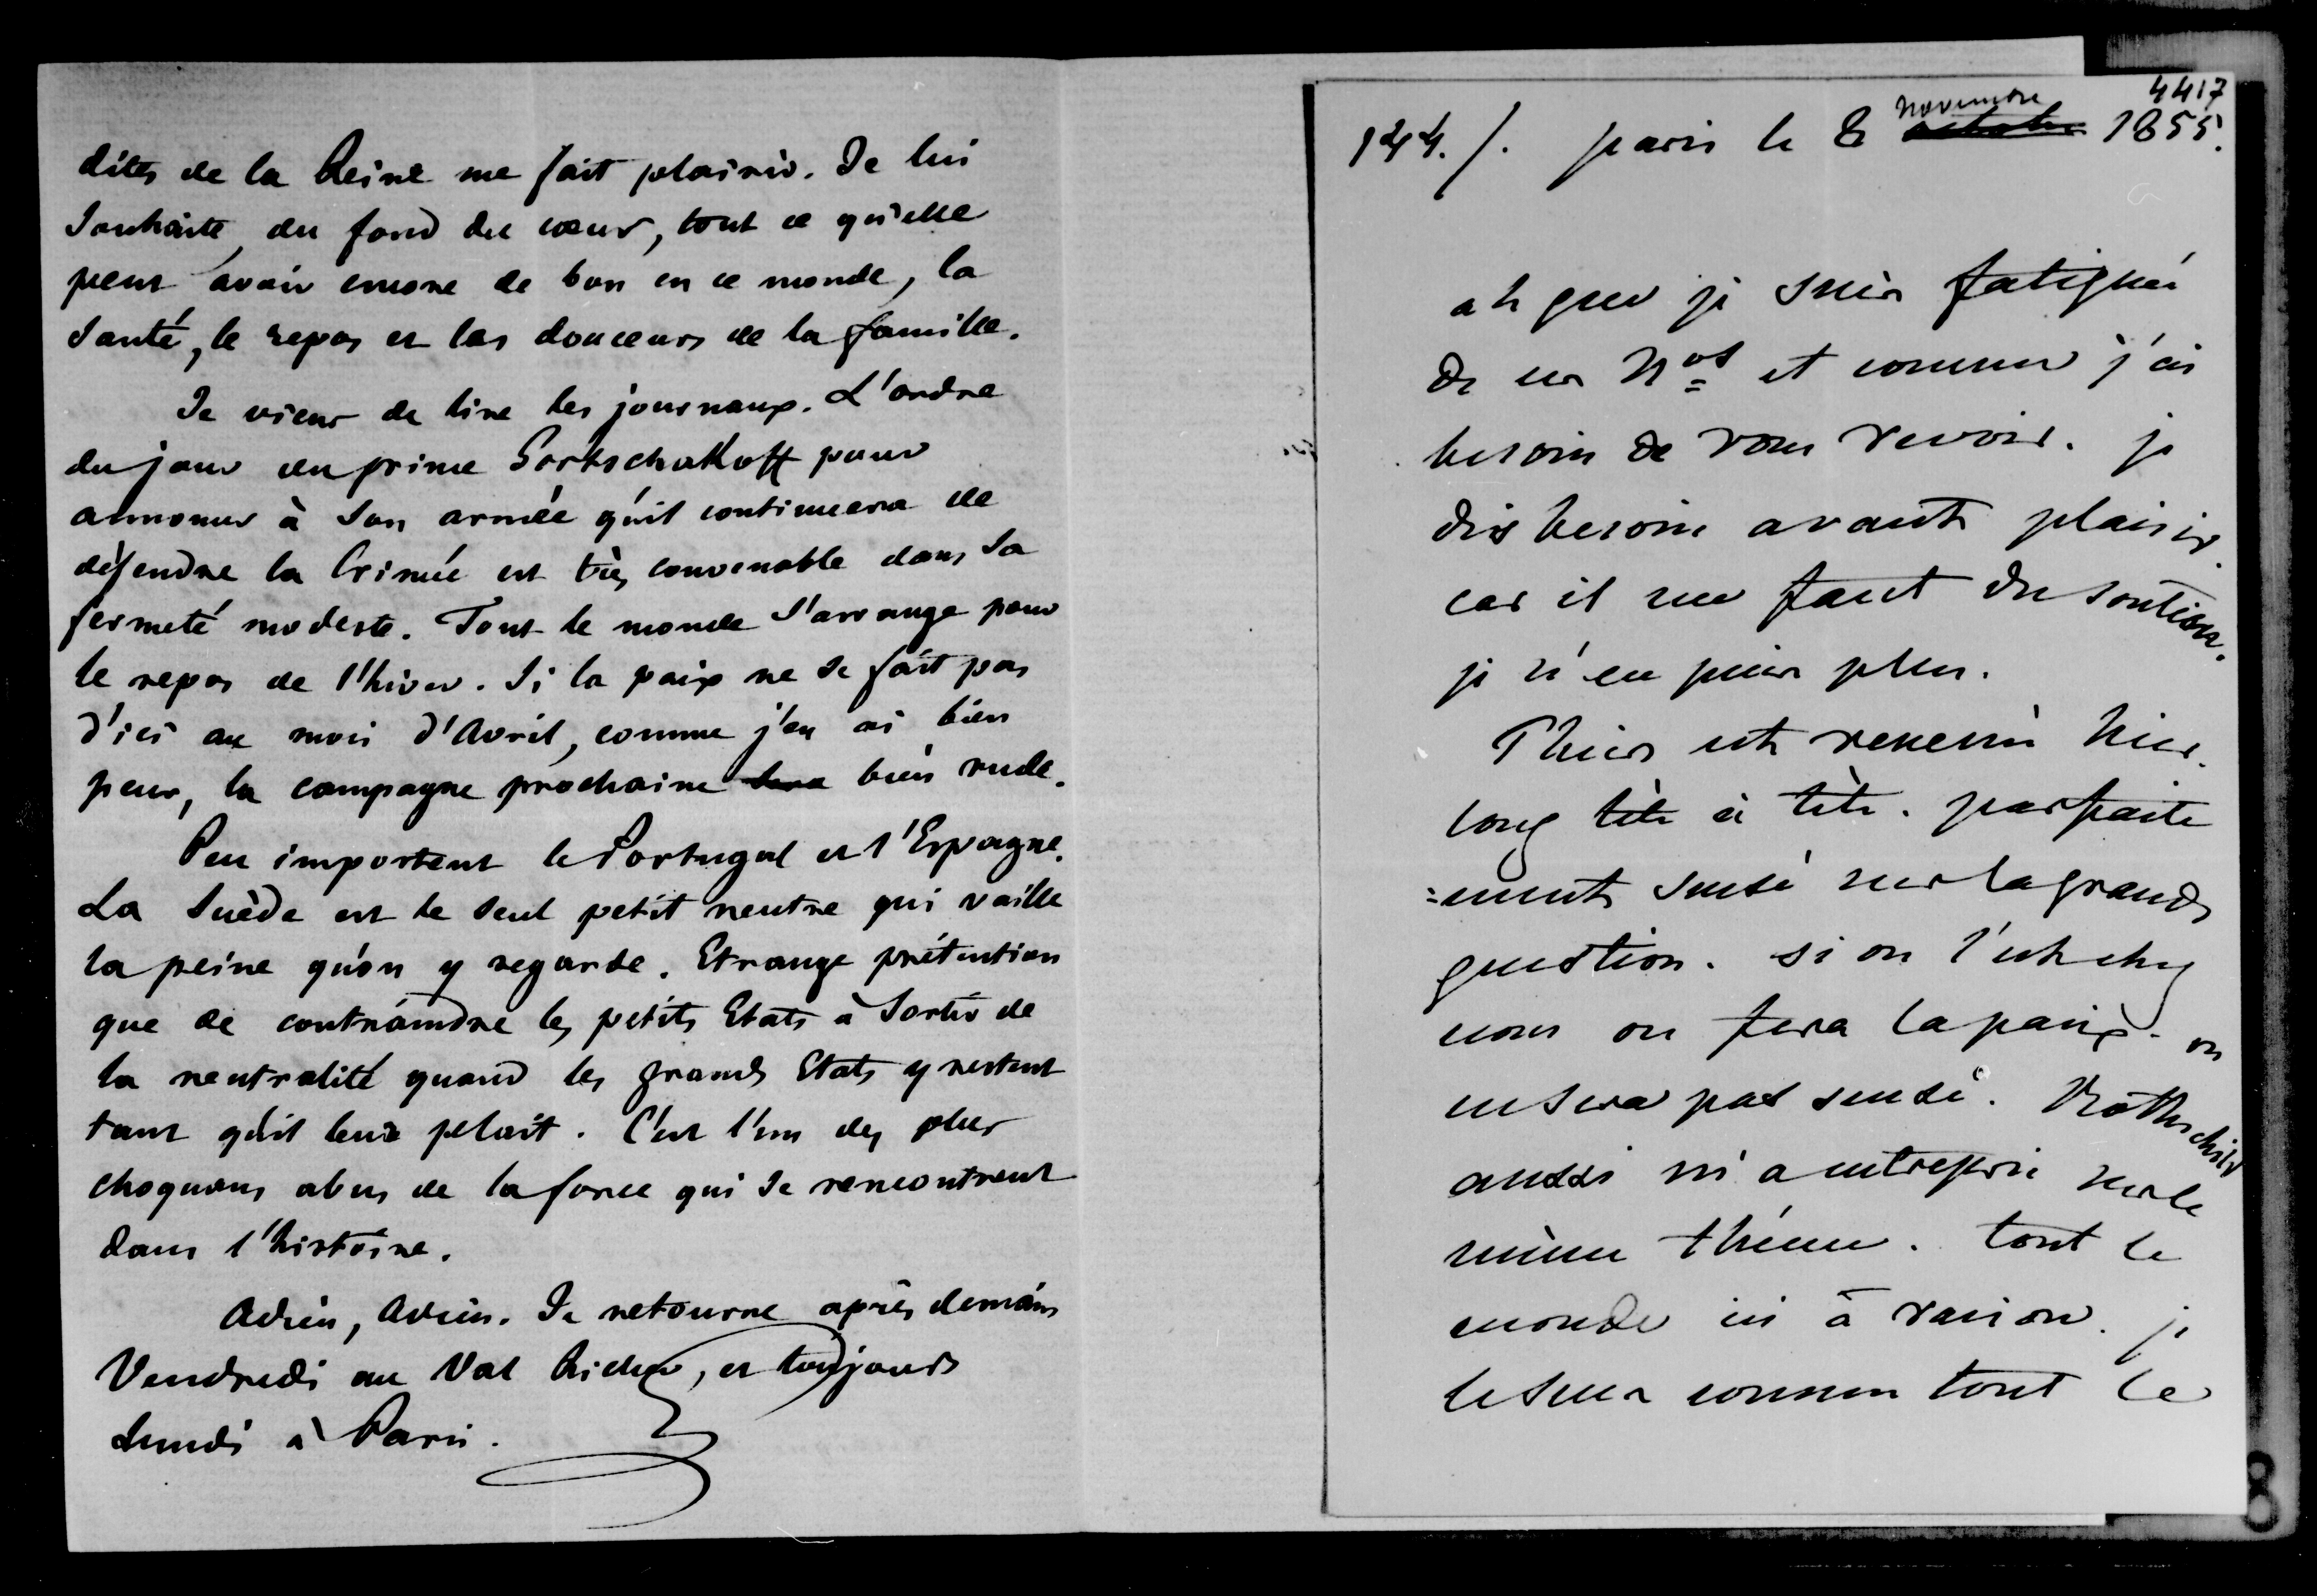 dites de la Reine me fait plaisir. Je lui
souhaite, du fond du cœur, tout ce qu'elle
peut avoir encore de bon en ce monde, la
santé, le repos et les douceurs de la famille.
Je viens de lire les journaux. L'ordre
du jour du prince Gortschakoff pour
annoncer à son armée qu'il continuera de
défendre la Crimée est très convenable dans sa
fermeté modeste. Tout le monde s'arrange pour
le repos de l'hiver. Si la paix ne se fait pas
d'ici au mois d'Avril, comme j'en ai bien
peur, la campagne prochaine sera bien rude.
Peu importent le Portugal et l'Espagne.
La Suède est le seul petit neutre qui vaille
la peine qu'on y regarde. Etrange prétention
que de contraindre les petits Etats à sortir de
la neutralité quand les grands Etats y restent
tant qu'il leur plait. C'est l'un des plus
choquans abus de la force qui se rencontrent
dans l'histoire.
Adieu, Adieu. Je retourne après demain
Vendredi au Val Richer, et toujours
Lundi à Paris.
4417
144./. paris le 8 novembre octobre 1855.
ah que je suis fatiguée
de ces Nos et comme j'ai
besoin de vous revoir. je
dis besoin avant plaisir.
car il me faut du soutien.
je n'en puis plus.
Thiers est revenu hier.
long tête à tête. parfaite
=ment sensé sur la grande
question. si on l'est chez
nous on fera la paix. on
ne sera pas sensé. Rothschild
aussi m'a entrepris sur le
même thème. tout le
monde ici à raison. je
le suis comme tout le
8